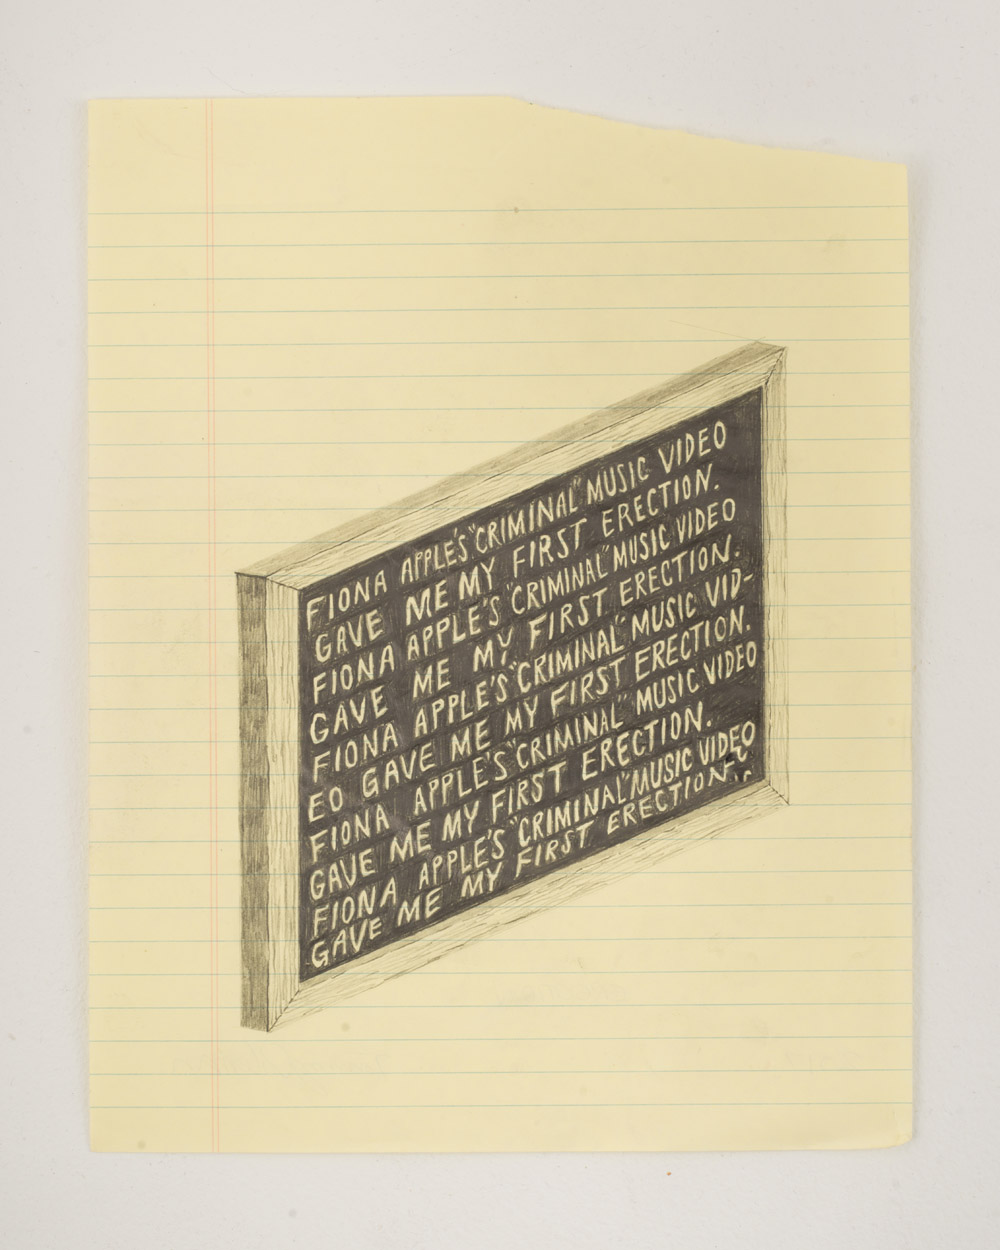 FIONA APPLE'S "CRIMINAL" MUSIC VIDEO
GAVE ME MY FIRST ERECTION.
FIONA APPLE'S "CRIMINAL" MUSIC VIDEO
GAVE ME MY FIRST ERECTION.
FIONA APPLE'S "CRIMINAL" MUSIC VID-
EO GAVE ME MY FIRST ERECTION.
FIONA APPLE'S "CRIMINAL" MUSIC VIDEO
GAVE ME MY FIRST ERECTION.
FIONA APPLE'S "CRIMINAL" MUSIC VIDEO
GAVE ME MY FIRST ERECTION.